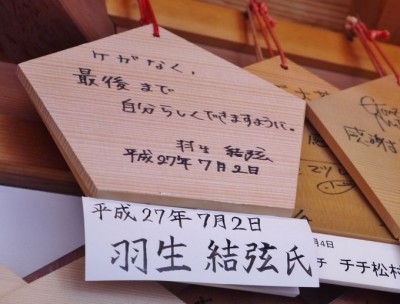 ケガなく、
最後まで
自分らしくできますように。
羽生 結弦
平成27年7月2日
平成27年7月2日
羽生 結弦氏
月4日
チ チチ松村